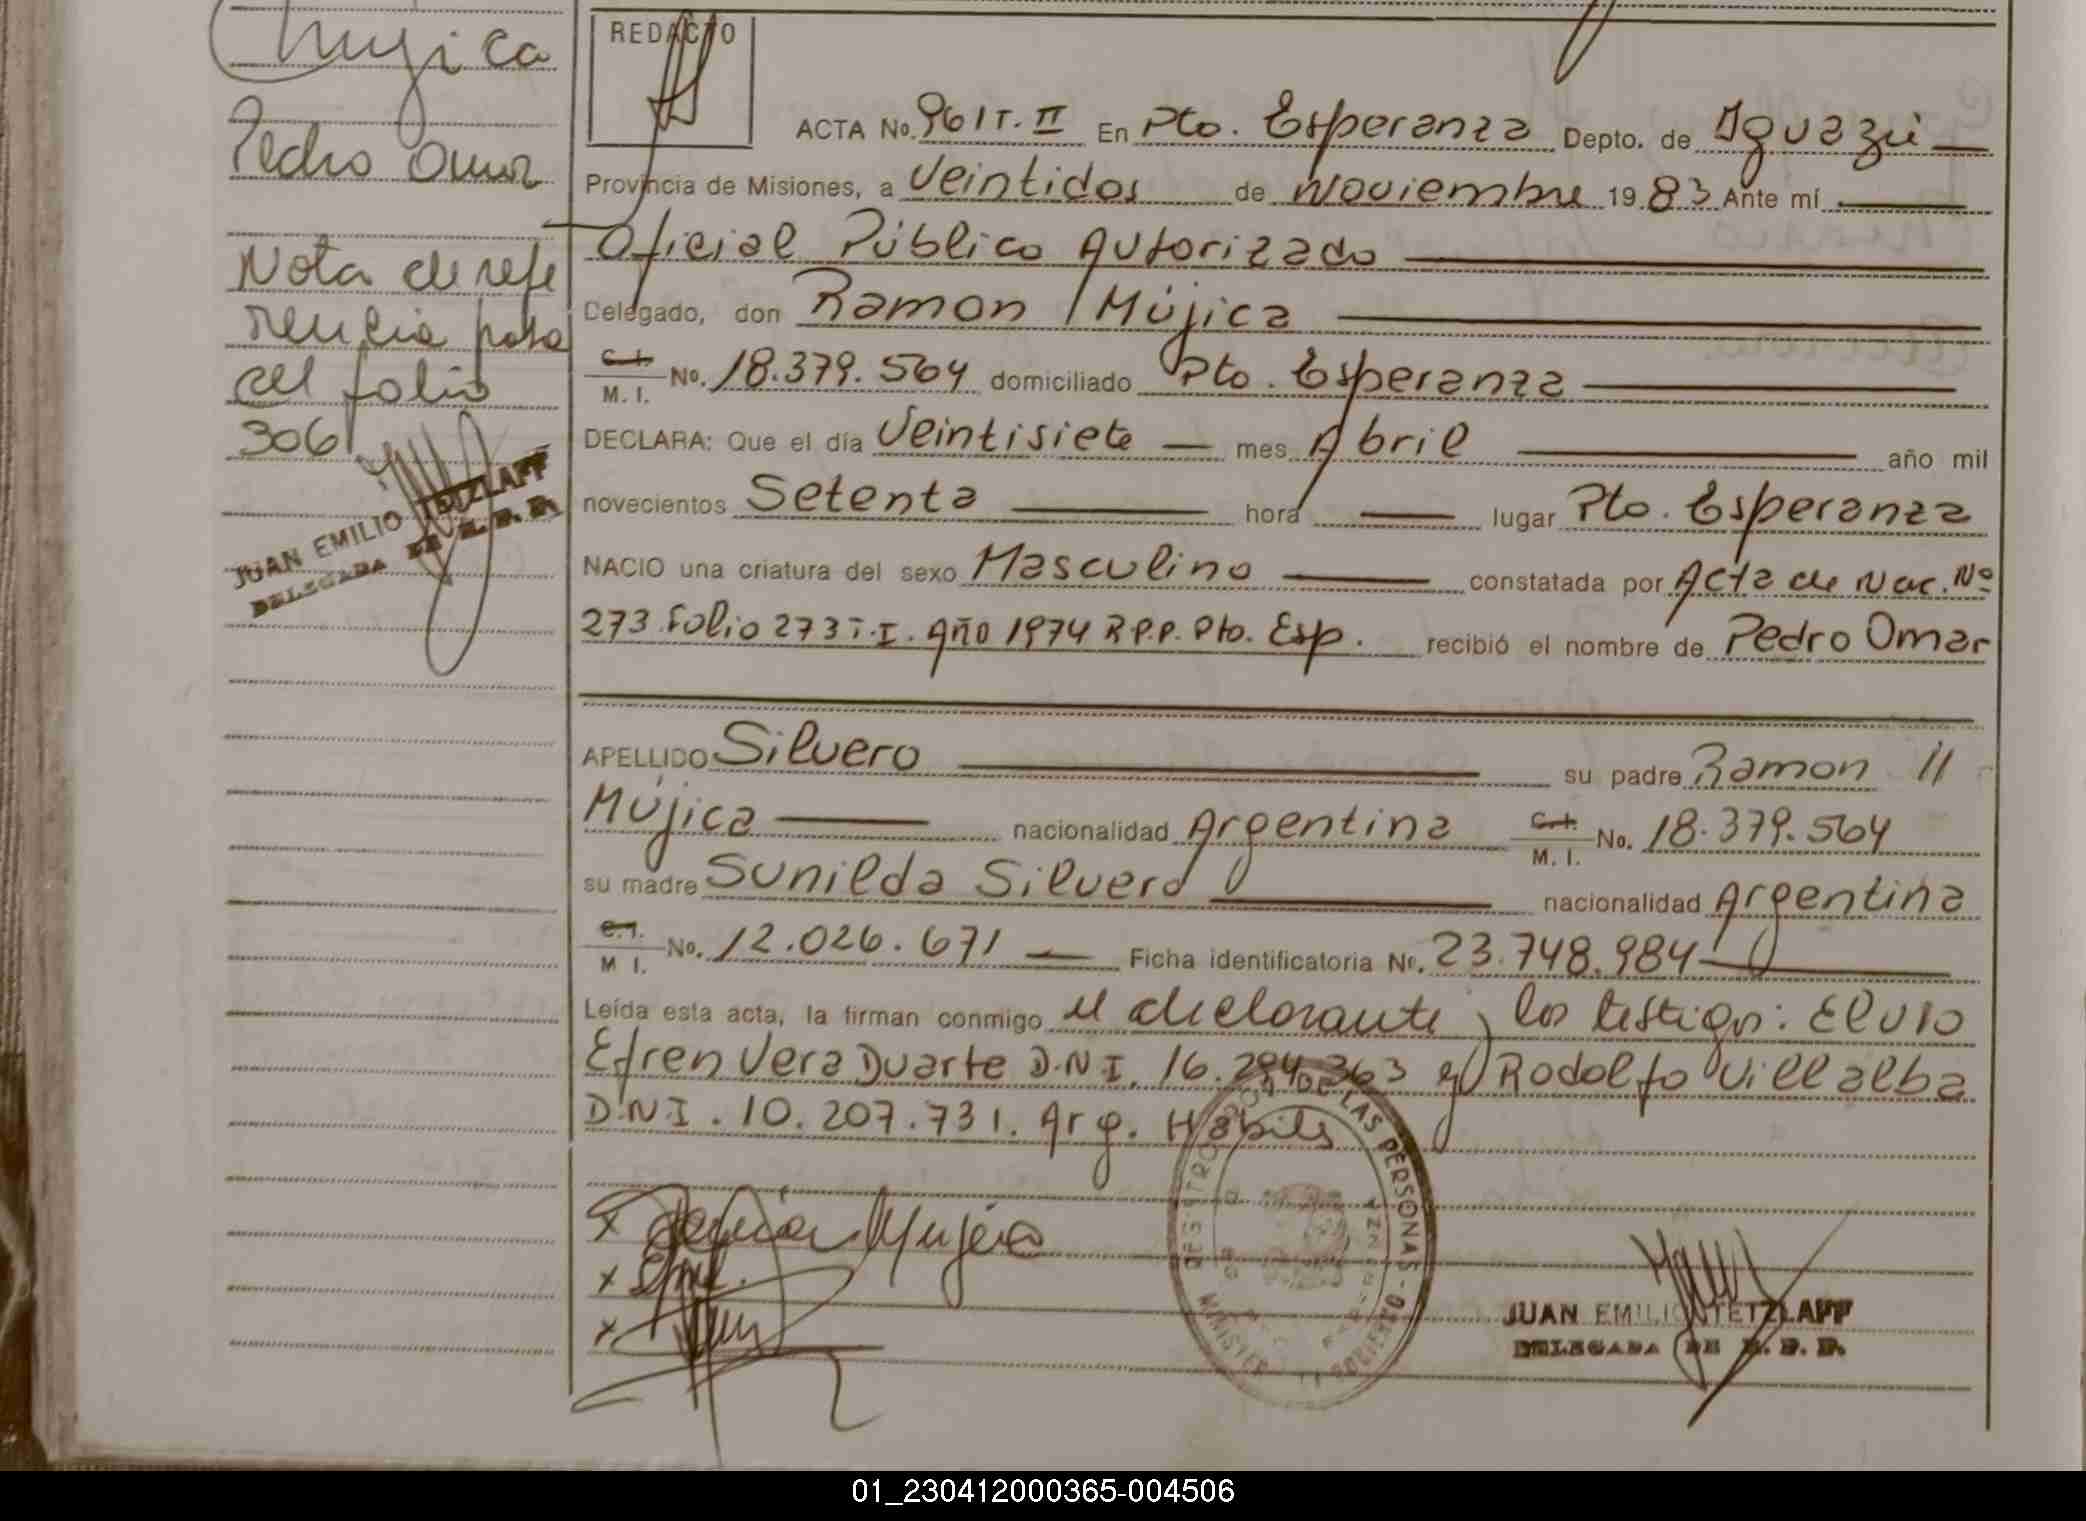 Mujica
Pedro Omar
Nota de refe
rencia pasa
al folio
306
JUAN EMILIO TETZLAFF
DELEGADA DE R. P. P.
REDACTO
ACTA No. 961 T. II En Pto. Esperanza Depto. de Iguazú
Provincia de Misiones, a Veintidos de Noviembre 1983 Ante mí
Oficial Público Autorizado
Delegado, don Ramon / Mújica
C. I. / M. I. No. 18.379.564 domiciliado Pto. Esperanza
DECLARA: Que el día Veintisiete mes Abril año mil
novecientos Setenta hora lugar Pto. Esperanza
NACIO una criatura del sexo Masculino constatada por Acta de Nac. Nº
273 Folio 273 T. I. Año 1974 R.P.P. Pto. Esp. recibió el nombre de Pedro Omar
APELLIDO Silvero su padre Ramon //
Mújica nacionalidad Argentina C. I. / M. I. No. 18.379.564
su madre Sunilda Silvero nacionalidad Argentina
C. I. / M I. No. 12.026.671 Ficha identificatoria No. 23.748.984
Leída esta acta, la firman conmigo el declarante y los testigos: Elvio
Efren Vera Duarte D.N.I. 16.294.363 y Rodolfo Villalba
D.N.I. 10.207.731. Arg. Habils
x Ramon Mujica
x
x
REGISTRO DE LAS PERSONAS - MINISTERIO GOBIERNO
JUAN EMILIO TETZLAFF
DELEGADA DE R. P. P.
01_230412000365-004506